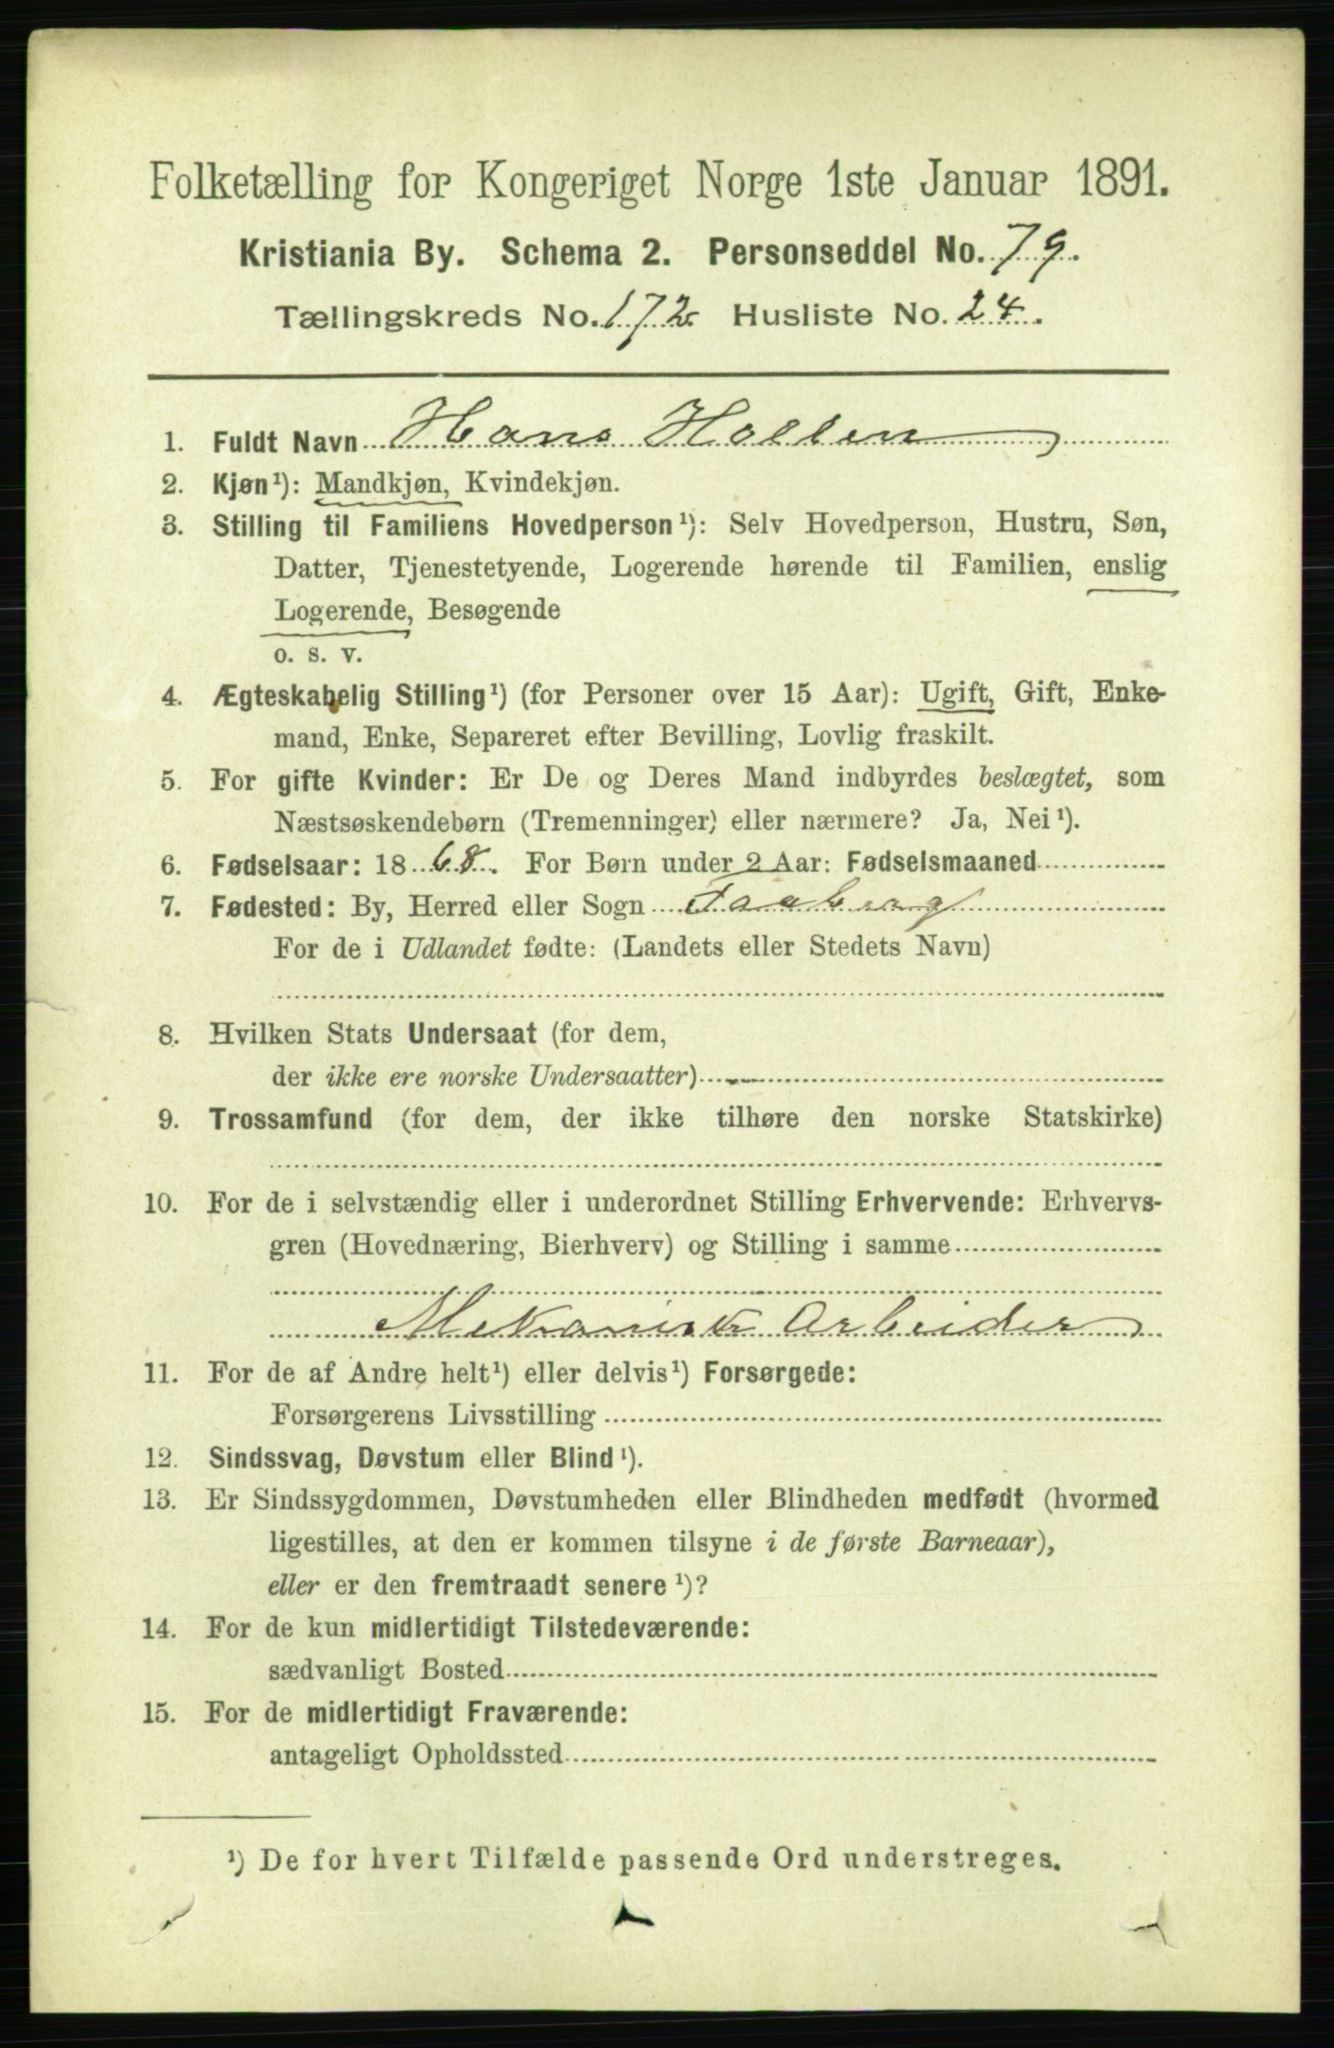 Folketælling for Kongeriget Norge 1ste Januar 1891.
Kristiania By. Schema 2. Personseddel No. 79.
Tællingskreds No. 172 Husliste No. 24.
1. Fuldt Navn Hans Hollen
2. Kjøn¹): Mandkjøn, Kvindekjøn.
3. Stilling til Familiens Hovedperson¹): Selv Hovedperson, Hustru, Søn,
Datter, Tjenestetyende, Logerende hørende til Familien, enslig
Logerende, Besøgende
o. s. v.
4. Ægteskabelig Stilling¹) (for Personer over 15 Aar): Ugift, Gift, Enke-
mand, Enke, Separeret efter Bevilling, Lovlig fraskilt.
5. For gifte Kvinder: Er De og Deres Mand indbyrdes beslægtet, som
Næstsøskendebørn (Tremenninger) eller nærmere? Ja, Nei¹).
6. Fødselsaar: 1868. For Børn under 2 Aar: Fødselsmaaned
7. Fødested: By, Herred eller Sogn Faaberg
For de i Udlandet fødte: (Landets eller Stedets Navn)
8. Hvilken Stats Undersaat (for dem,
der ikke ere norske Undersaatter)
9. Trossamfund (for dem, der ikke tilhøre den norske Statskirke)
10. For de i selvstændig eller i underordnet Stilling Erhvervende: Erhvervs-
gren (Hovednæring, Bierhverv) og Stilling i samme
Mekanisk Arbeider
11. For de af Andre helt¹) eller delvis¹) Forsørgede:
Forsørgerens Livsstilling
12. Sindssvag, Døvstum eller Blind¹).
13. Er Sindssygdommen, Døvstumheden eller Blindheden medfødt (hvormed
ligestilles, at den er kommen tilsyne i de første Barneaar),
eller er den fremtraadt senere¹)?
14. For de kun midlertidigt Tilstedeværende:
sædvanligt Bosted
15. For de midlertidigt Fraværende:
antageligt Opholdssted
¹) De for hvert Tilfælde passende Ord understreges.